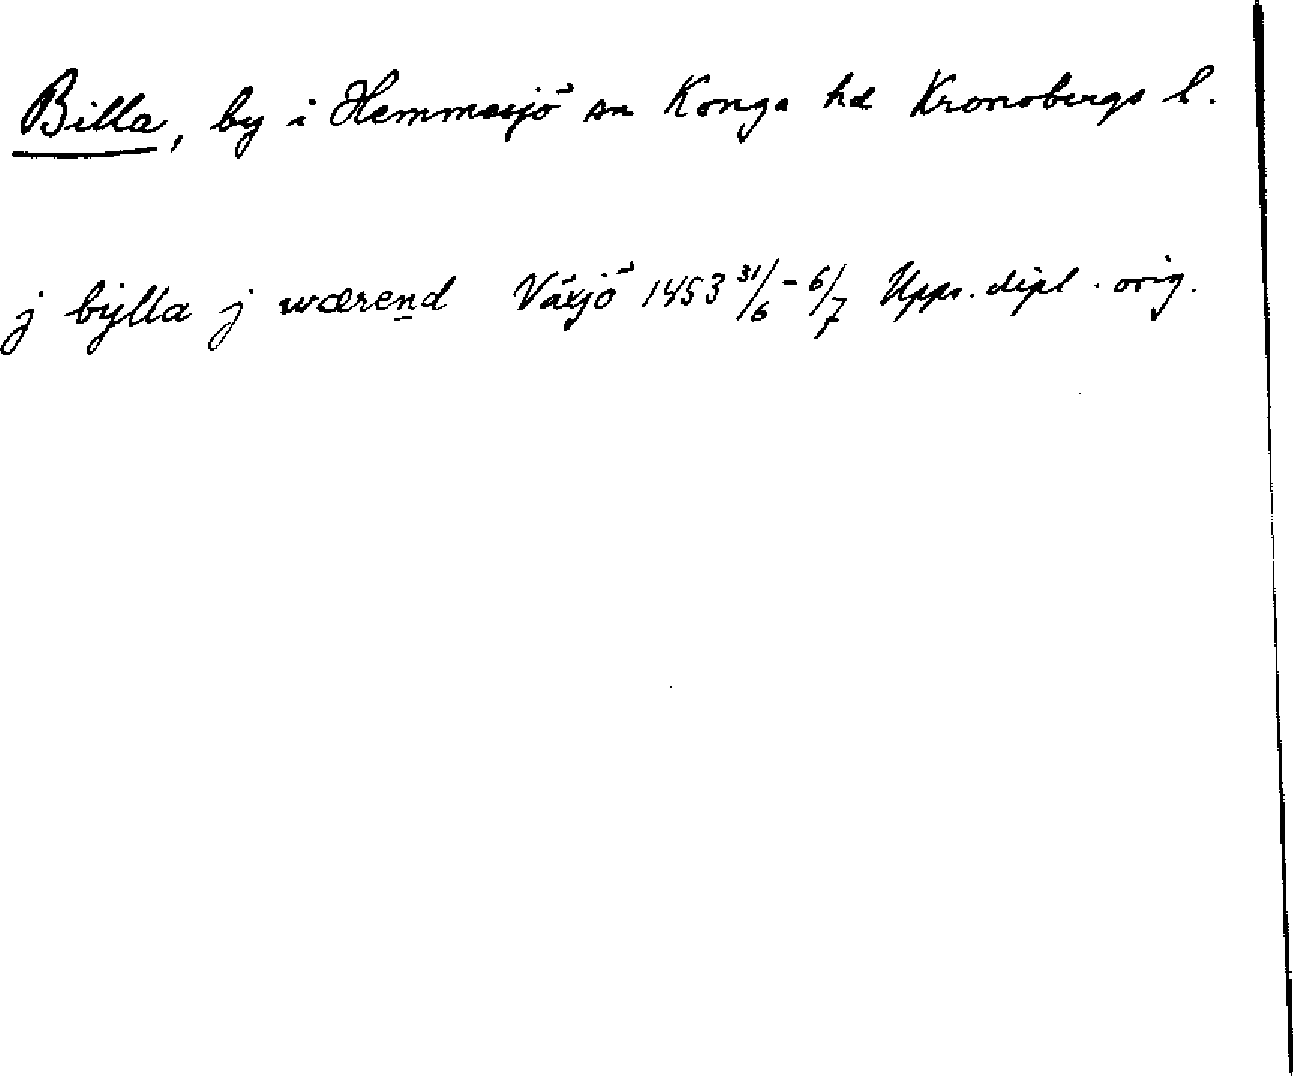 Billa, by i Hemmesjö sn Konga hd Kronobergs l.
j bÿlla j wærend Växjö 1453 31/6 - 6/7 Upps. dipl. orig.